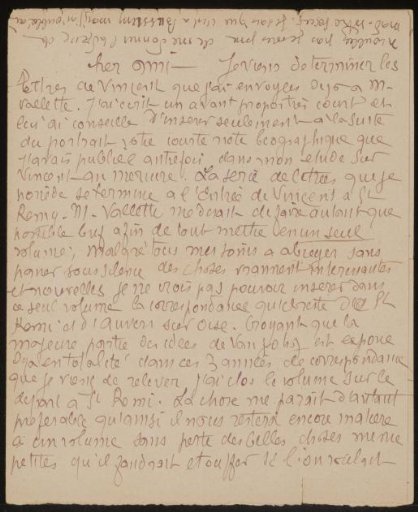 Cher ami — Je viens de terminer les
lettres de Vincent que j'ai envoyées à M.
Vallette. J'ai écrit un avant propos très court et
lui ai conseillé d'insérer seulement à la suite
du portrait votre courte note biographique que
j'avais publiée autrefois, dans mon étude sur
Vincent au mercure. La série de lettres que je
possède se termine à l'Entrée de Vincent à St
Remy. M. Vallette me disait de faire autant que
possible afin de tout mettre en un seul
volume; malgré tous mes soins à abréger sans
passer sous silence des choses vraiment intéressantes
et nouvelles je ne crois pas pouvoir insérer dans
ce seul volume la correspondance qui date de St
Remi et d'Auvers sur Oise. Croyant que la
majeure partie des idées de Van Gogh est exposée
en totalité dans ces 3 années de correspondance
que je viens de relever j'ai clos le volume sur le
départ à St Remi. La chose me paraît d'autant
préférable qu'ainsi il nous restera encore matière
à un volume sans perte des belles choses même
petites qu'il faudrait étouffer si l'on voulait